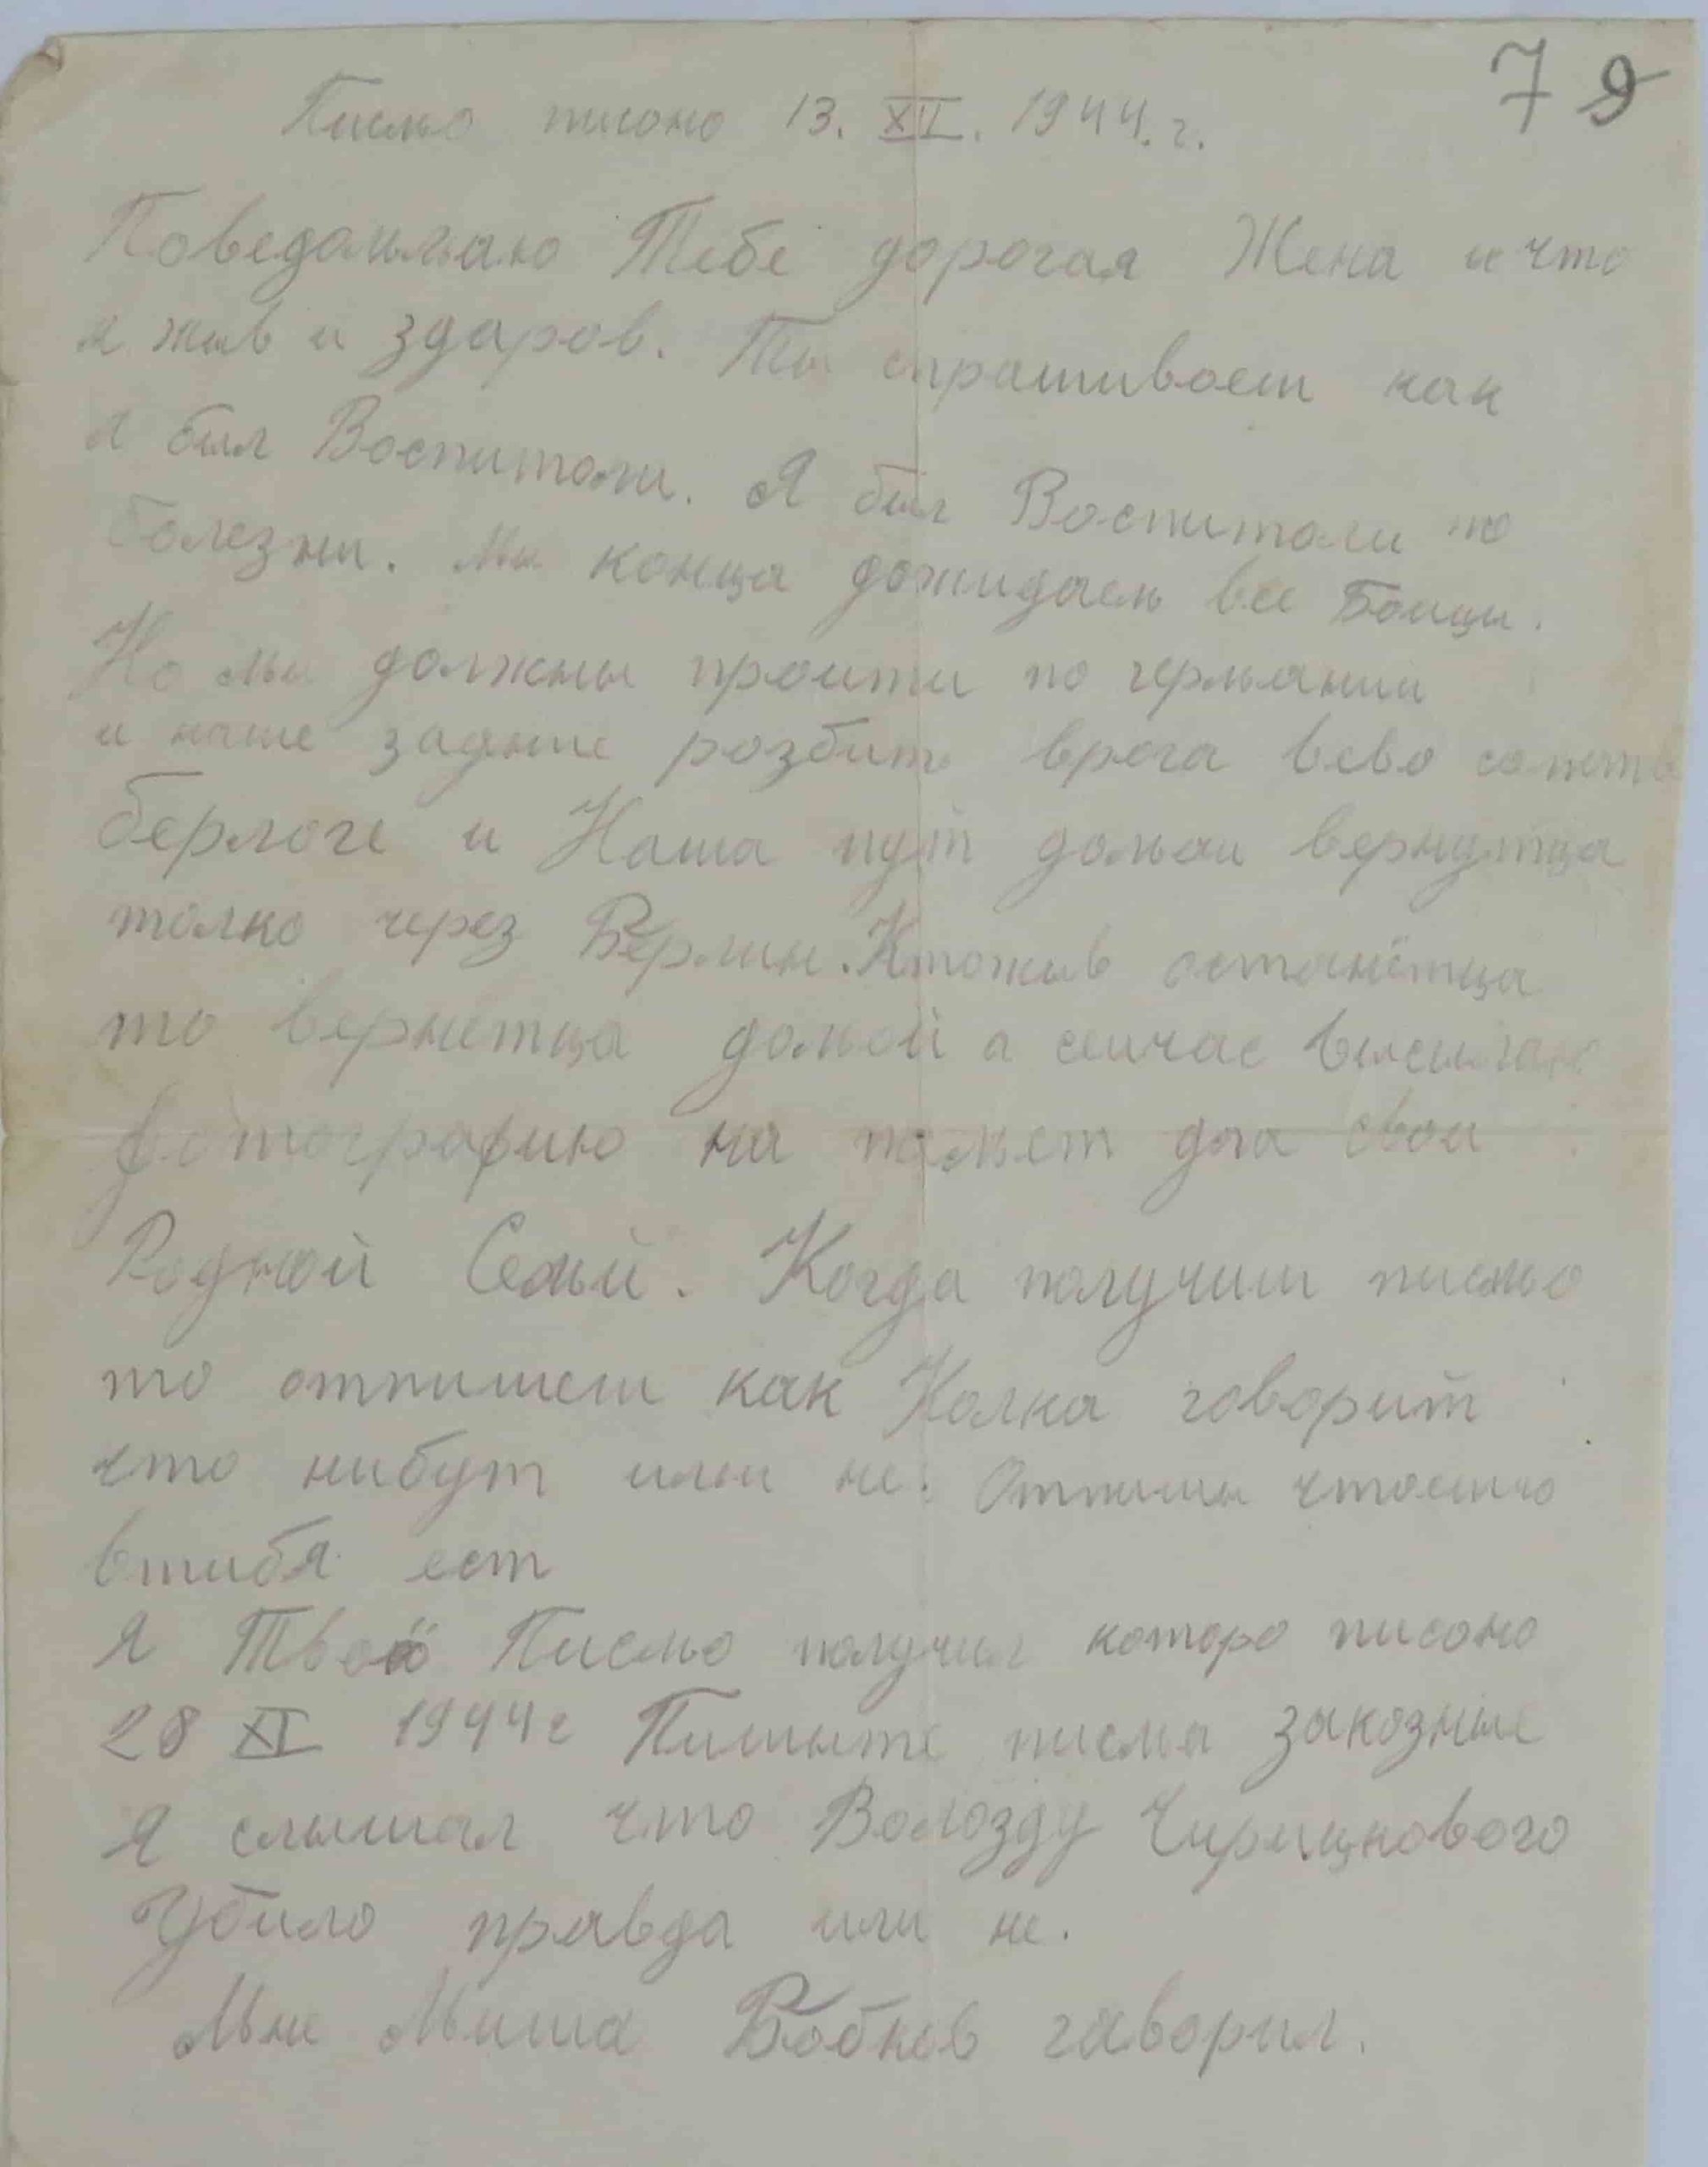 79
Писмо писоно 13. XII. 1944. г.
Поведомляю Тебе дорогая Жена и что
я жив и здаров. Ты спрашиваеш как
я был Воспитоли. Я был Воспитоли по
болезни. Мы конца дожидаем все Боици.
Но мы должны проити по германии
и наше задние розбить врага всво
берлоге и Наша пут домаи вернутца
толко через Берлин. Ктожив останётца
то вернётца домой а сеичас высылаю
фотографию на памет для свои
Родной Семьи. Когда получиш писмо
то отпишеш как Колка говорит
что нибут или не. Отпиши
втибя ест
Я Твоё Писмо получил которо писоно
28 XI 1944 г Пишыте писма закозные
Я слышал что Волозду
Убило правда или не.
Мне Миша Бобков гаворил.